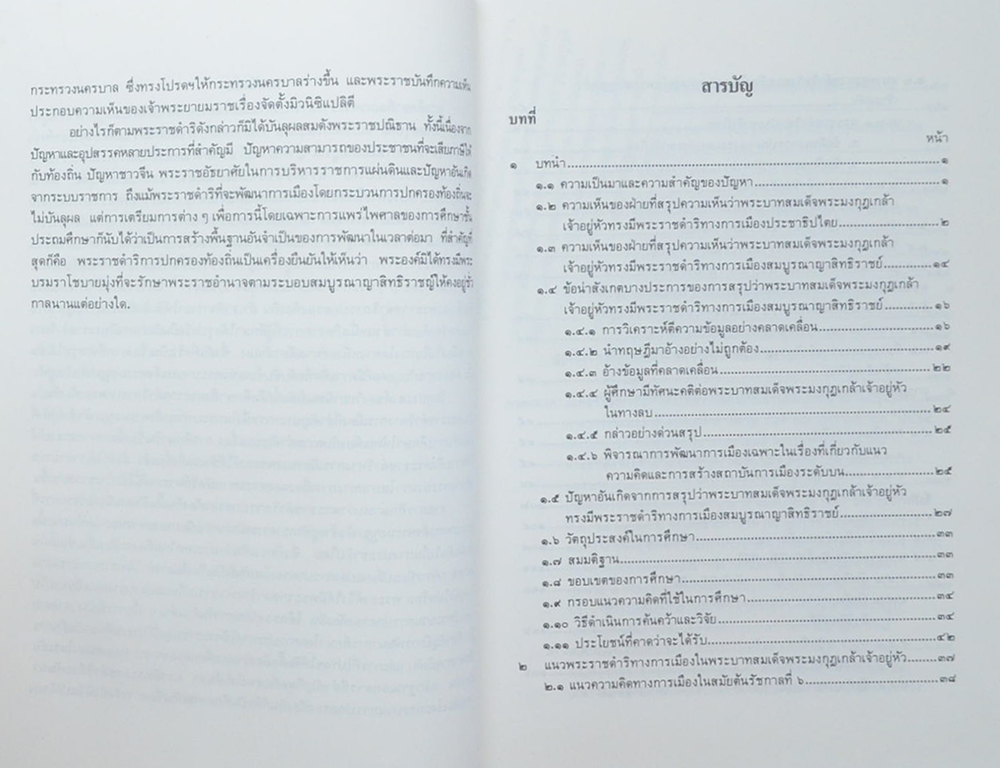 กระทรวงนครบาล ซึ่งทรงโปรดฯให้กระทรวงนครบาลร่างขึ้น และพระราชบันทึกความเห็น
ประกอบความเห็นของเจ้าพระยายมราชเรื่องจัดตั้งมิวนิซิแปลิตี
อย่างไรก็ตามพระราชดำริดังกล่าวก็มิได้บันลุผลสมดังพระราชปณิธาน ทั้งนี้เนื่องจาก
ปัญหาและอุปสรรคหลายประการที่สำคัญมี ปัญหาความสามารถของประชาชนที่จะเสียภาษีให้
กับท้องถิ่น ปัญหาชาวจีน พระราชอัธยาศัยในการบริหารราชการแผ่นดินและปัญหาอันเกิด
จากระบบราชการ ถึงแม้พระราชดำริที่จะพัฒนาการเมืองโดยกระบวนการปกครองท้องถิ่นจะ
ไม่บันลุผล แต่การเตรียมการต่าง ๆ เพื่อการนี้โดยเฉพาะการแพร่ไพศาลของการศึกษาชั้น
ประถมศึกษาก็นับได้ว่าเป็นการสร้างพื้นฐานอันจำเป็นของการพัฒนาในเวลาต่อมา ที่สำคัญที่
สุดก็คือ พระราชดำริการปกครองท้องถิ่นเป็นเครื่องยืนยันให้เห็นว่า พระองค์มิได้ทรงมีพระ
บรมราโชบายมุ่งที่จะรักษาพระราชอำนาจตามระบอบสมบูรณาญาสิทธิราชญ์ให้คงอยู่ชั่ว
กาลนานแต่อย่างใด.
สารบัญ
บทที่
หน้า
๑ บทนำ...........๑
๑.๑ ความเป็นมาและความสำคัญของปัญหา...........๑
๑.๒ ความเห็นของฝ่ายที่สรุปความเห็นว่าพระบาทสมเด็จพระมงกุฎเกล้า
เจ้าอยู่หัวทรงมีพระราชดำริทางการเมืองประชาธิปไตย...........๒
๑.๓ ความเห็นของฝ่ายที่สรุปความเห็นว่าพระบาทสมเด็จพระมงกุฎเกล้า
เจ้าอยู่หัวทรงมีพระราชดำริทางการเมืองสมบูรณาญาสิทธิราชย์...........๑๔
๑.๔ ข้อน่าสังเกตบางประการของการสรุปว่าพระบาทสมเด็จพระมงกุฎเกล้า
เจ้าอยู่หัวทรงมีพระราชดำริทางการเมืองสมบูรณาญาสิทธิราชย์...........๑๖
๑.๔.๑ การวิเคราะห์ตีความข้อมูลอย่างคลาดเคลื่อน...........๑๖
๑.๔.๒ นำทฤษฎีมาอ้างอย่างไม่ถูกต้อง...........๑๙
๑.๔.๓ อ้างข้อมูลที่คลาดเคลื่อน...........๒๒
๑.๔.๔ ผู้ศึกษามีทัศนะคติต่อพระบาทสมเด็จพระมงกุฎเกล้าเจ้าอยู่หัว
ในทางลบ...........๒๔
๑.๔.๕ กล่าวอย่างด่วนสรุป...........๒๕
๑.๔.๖ พิจารณาการพัฒนาการเมืองเฉพาะในเรื่องที่เกี่ยวกับแนว
ความคิดและการสร้างสถาบันการเมืองระดับบน...........๒๕
๑.๕ ปัญหาอันเกิดจากการสรุปว่าพระบาทสมเด็จพระมงกุฎเกล้าเจ้าอยู่หัว
ทรงมีพระราชดำริทางการเมืองสมบูรณาญาสิทธิราชย์...........๒๗
๑.๖ วัตถุประสงค์ในการศึกษา...........๓๓
๑.๗ สมมติฐาน...........๓๓
๑.๘ ขอบเขตของการศึกษา...........๓๓
๑.๙ กรอบแนวความคิดที่ใช้ในการศึกษา...........๓๔
๑.๑๐ วิธีดำเนินการค้นคว้าและวิจัย...........๓๔
๑.๑๑ ประโยชน์ที่คาดว่าจะได้รับ...........๔๒
๒ แนวพระราชดำริทางการเมืองในพระบาทสมเด็จพระมงกุฎเกล้าเจ้าอยู่หัว.......๓๗
๒.๑ แนวความคิดทางการเมืองในสมัยต้นรัชกาลที่ ๖...........๓๘